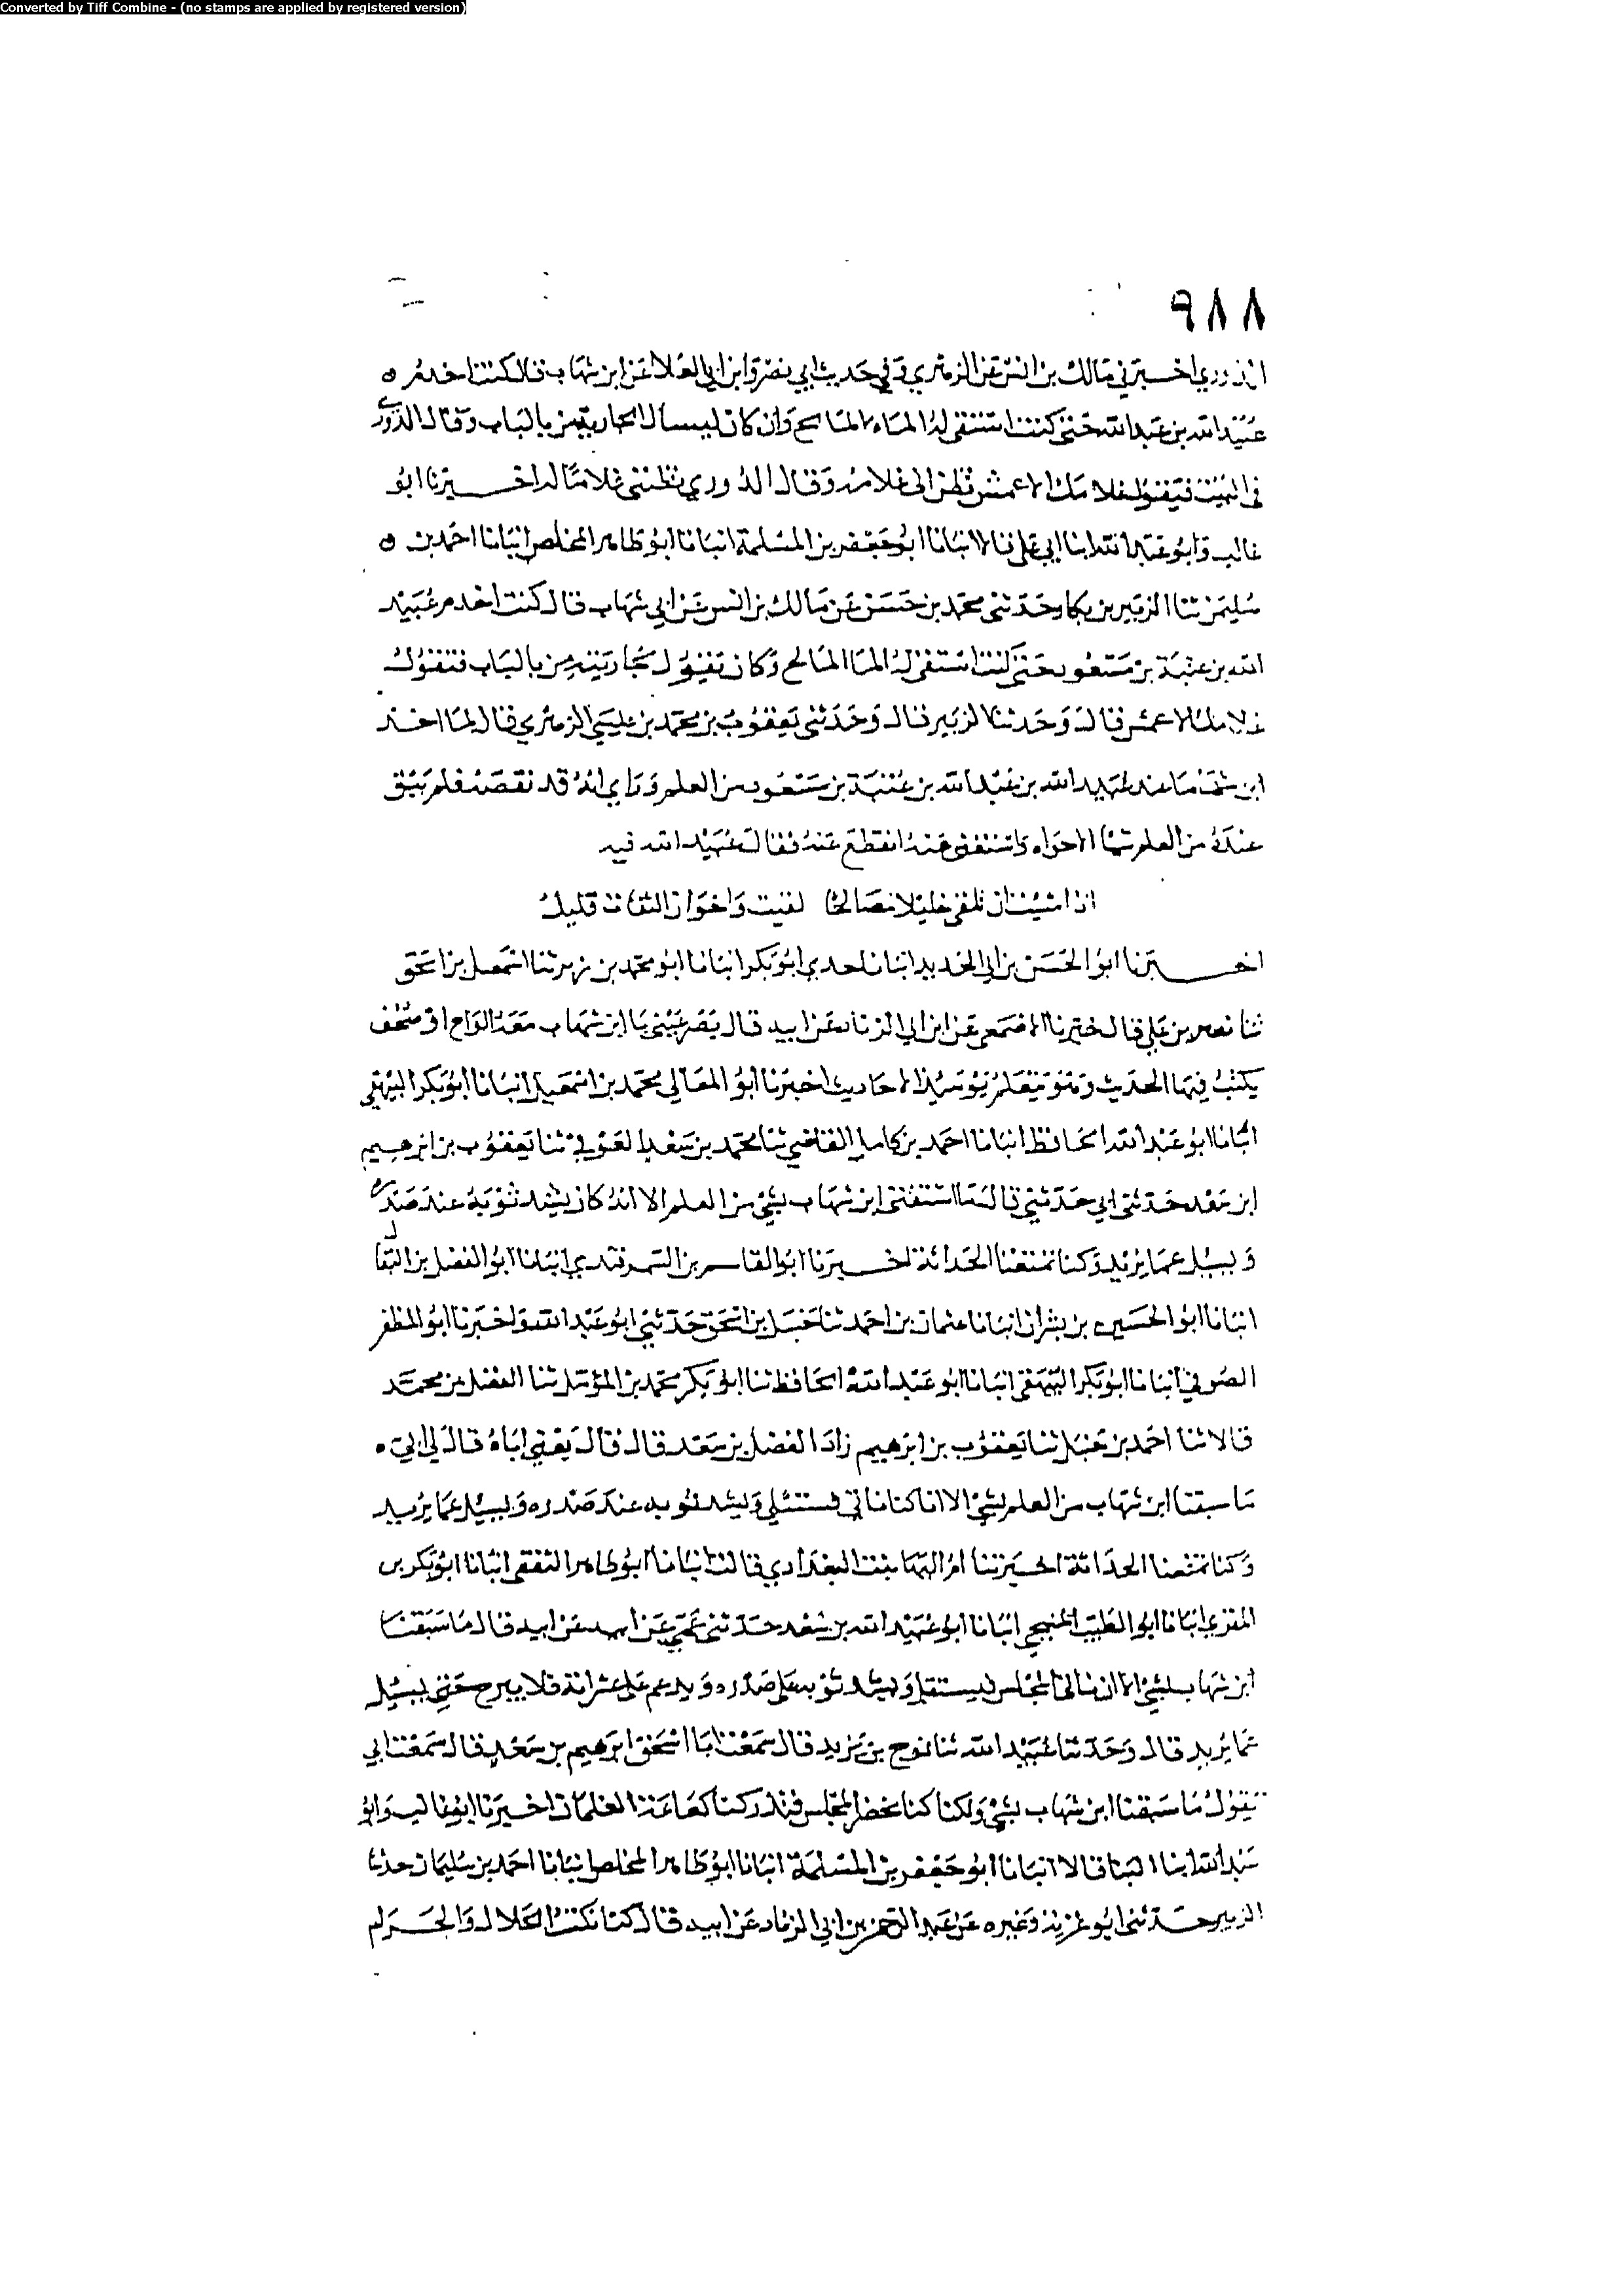 Converted by Tiff Combine - (no stamps are applied by registered version)
٩٨٨
الدوري اخبرني مالك بن انس عن الزهري وفي حديث ابي نصر وابن ابي العلا عن ابن شهاب قال كنت اخدم
عبيد الله بن عبد الله حتى كنت استقي له الماء المالح وان كان ليسال الجارية من بالباب وقال الدوري
في البيت فيقول غلامك الاعمش تظن اني غلامه وقال الدوري تظنني غلاما له اخبرنا ابو
غالب وابو عبد الله ابنا ابي علي قالا انبانا ابو جعفر بن المسلمة انبانا ابو طاهر المخلص انبانا احمد بن
سليمن ثنا الزبير بن بكار وحدثني محمد بن حسن عن مالك بن انس عن ابي شهاب قال كنت اخدم عبيد
الله بن عتبة بن مسعود حتى كنت استقي له الما المالح وكان يقول لجاريته من بالباب فتقول
غلامك الاعمش قال وحدثنا الزبير قال وحدثني يعقوب بن محمد بن عيسى الزهري قال لما اخذ
ابن شهاب ما عند عبيد الله بن عبد الله بن عتبة بن مسعود من العلم وراي انه قد نقصه فلم يبق
عنده من العلم شيا الا حواه واستقى عنه انقطع عنه فقال عبيد الله فيه
اذا شئت ان تلقى خليلا مصالحا لقيت واخوان الثقات قليل
اخبرنا ابو الحسن بن ابي الحديد انبانا جدي ابو بكر انبانا ابو محمد بن زبر ثنا اسمعيل بن اسحق
ثنا نصر بن علي قال خبرنا الاصمعي عن ابن ابي الزناد عن ابيه قال بصر عيني يا ابن شهاب معه الواح او صحف
يكتب فيها الحديث وهو يتعلم يومئذ الاحاديث اخبرنا ابو المعالي محمد بن اسمعيل انبانا ابو بكر البيهقي
انبانا ابو عبد الله الحافظ انبانا احمد بن كامل القاضي ثنا محمد بن سعد العوفي ثنا يعقوب بن ابرهيم
ابن سعد حدثني ابي حدثني قال ما استقنا ابن شهاب بشي من العلم الا انه كان يشد ثوبه عند صدره
ويسيل عما يريد وكنا تمنعنا الحداثة اخبرنا ابو القاسم بن السمرقندي انبانا ابو الفضل بن البقال
انبانا ابو الحسين بن بشران انبانا عثمان بن احمد ثنا حنبل بن اسحق حدثني ابو عبد الله واخبرنا ابو المظفر
الصوفي انبانا ابو بكر البيهقي انبانا ابو عبد الله الحافظ ثنا ابو بكر محمد بن المؤمل ثنا الفضل بن محمد
قالا ثنا احمد بن حنبل ثنا يعقوب بن ابرهيم زاد الفضل بن سعد قال قال يعني اباه قال لي ابي
ما سبقنا ابن شهاب من العلم بشي الا انا كنا ناتي فيستنتل ويشد ثوبه عند صدره ويسيل عما يريد
وكنا تمنعنا الحداثة اخبرتنا ام البها بنت البغدادي قالت انبانا ابو طاهر الثقفي انبانا ابو بكر بن
المقري انبانا ابو الطيب المنبجي انبانا ابو عبيد الله بن سعد حدثني عمي عن ابيه عن ابيه قال ما سبقنا
ابن شهاب بشي الا ان ياتي المجلس فيستقبل ويشد ثوبه على صدره ويدعم على عشرانة فلا يبرح حتى يسيل
عما يريد قال وحدثنا عبيد الله ثنا نوح بن يزيد قال سمعت ابا اسحق ابرهيم بن سعد قال سمعت ابي
يقول ما سبقنا ابن شهاب بشي ولكنا كنا نحضر المجلس اخبرنا ابو غالب وابو
عبد الله ابنا البنا قالا انبانا ابو جعفر بن المسلمة انبانا ابو طاهر المخلص انبانا احمد بن سليمان حدثنا
الزبير حدثني ابو غزية وغيره عن عبد الرحمن بن ابي الزناد عن ابيه قال كنا نكتب الحلال والحرام